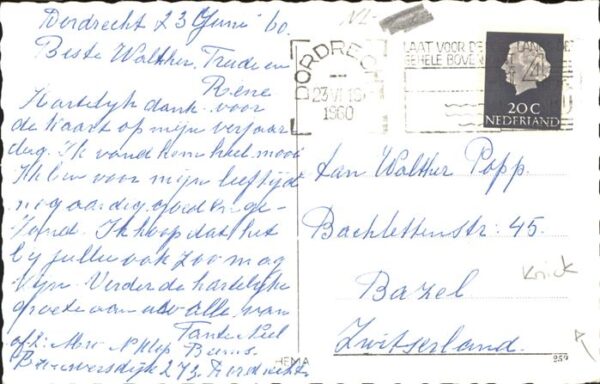 Dordrecht 23 Juni '60.
Beste Walther, Trude en
René
Hartelijk dank voor
de kaart op mijn verjaar
dag. Ik vond hem heel mooi
Ik ben voor mijn leeftijd
nog aardig goed en ge-
zond. Ik hoop dat het
bij jullie ook zoo mag
zijn. Verder de hartelijke
groete aan u allen van
Tante Nel
afz: Mevr
273 Dordrecht
HEMA
NL-
DORDRECHT
23 VI 16
1960
LAAT VOOR DE
GEHELE BOVEN
20 C
NEDERLAND
Jan Walther Popp.
Bachlettenstr: 45.
Bazel
Zwitserland
Knick
259